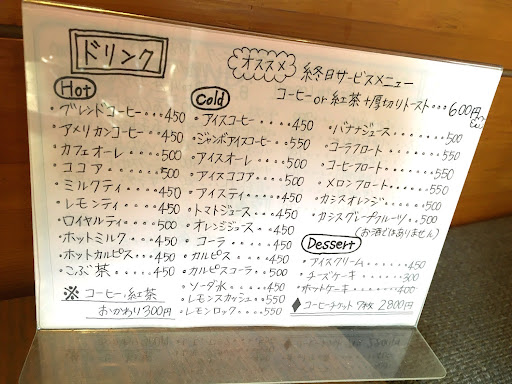 ドリンク
オススメ 終日サービスメニュー
コーヒー or 紅茶 + 厚切りトースト・・・600円
Hot
・ブレンドコーヒー・・・450
・アメリカンコーヒー・・・450
・カフェオーレ・・・500
・ココア・・・500
・ミルクティ・・・450
・レモンティ・・・450
・ロイヤルティ・・・500
・ホットミルク・・・450
・ホットカルピス・・・450
・こぶ茶・・・450
※ コーヒー、紅茶
おかわり300円
Cold
・アイスコーヒー・・・450
・ジャンボアイスコーヒー・・550
・アイスオーレ・・・500
・アイスココア・・・500
・アイスティ・・・450
・トマトジュース・・・450
・オレンジジュース・・・450
・コーラ・・・450
・カルピス・・・450
・カルピスコーラ・・・500
・ソーダ水・・・450
・レモンスカッシュ・・・550
・レモンロック・・・・550
・バナナジュース・・・・500
・コーラフロート・・・・550
・コーヒーフロート・・・550
・メロンフロート・・・・550
・カシスオレンジ・・・・500
・カシスグレープフルーツ・・500
(お酒ではありません)
Dessert
・アイスクリーム・・・・450
・チーズケーキ・・・・300
・ホットケーキ・・・・400
◆コーヒーチケット 7枚 2800円